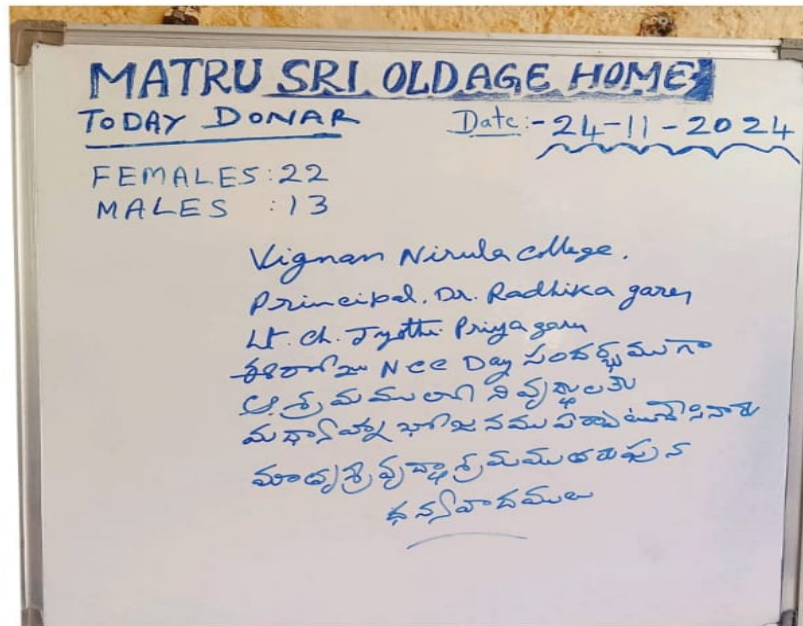 MATRU SRI OLDAGE HOME
TODAY DONAR
Date:- 24-11-2024
FEMALES: 22
MALES : 13
Vignan Nirula college.
Principal. Dr. Radhika garu
Lt. Ch. Jyothi Priya garu
ఈరోజు NCC Day సందర్భముగా
ఆశ్రమములోని వృద్ధులకు
మధ్యాహ్న భోజనము ఏర్పాటుచేసినారు
మాతృశ్రీ వృద్ధాశ్రమము తరుపున
ధన్యవాదములు